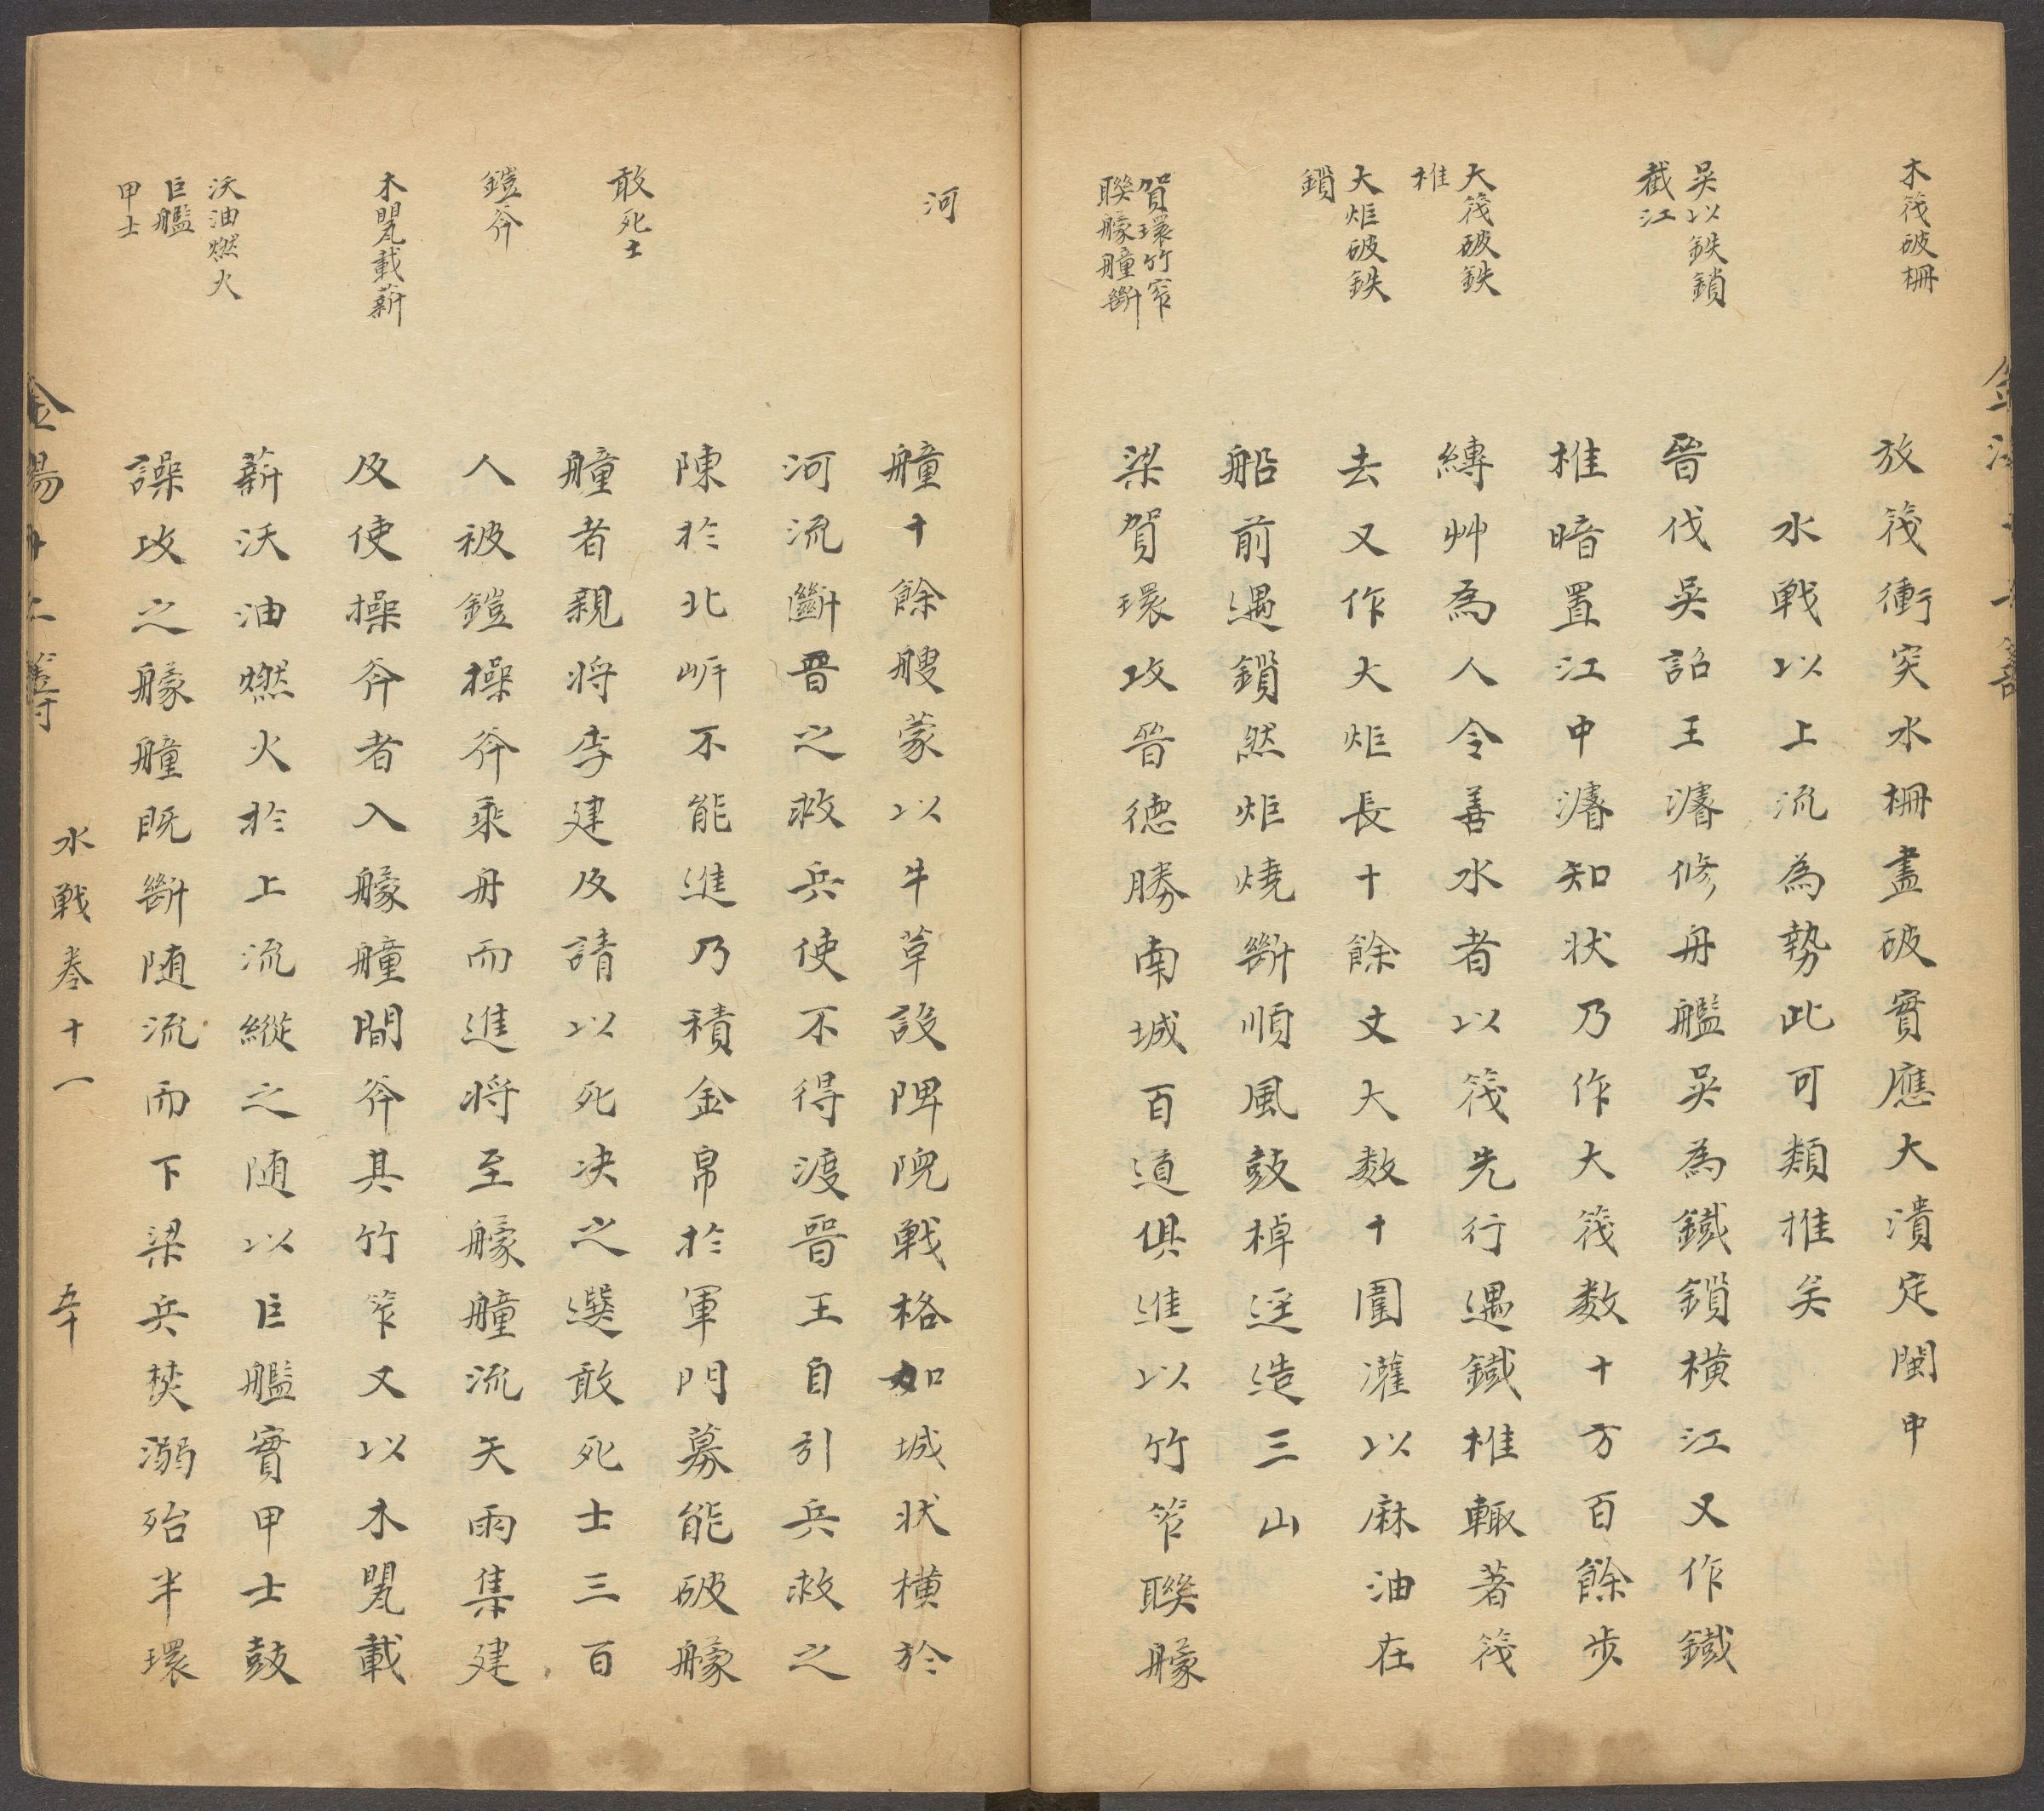 木筏破柵
吳以鉄鎖
截江
大筏破鉄
椎
大炬破鉄
鎖
賀環竹窄
聯艨艟斷
放筏衝突水柵盡破實應大潰定閩中
水戰以上流為勢此可類推矣
晉伐吳詔王濬修舟艦吳為鐵鎖橫江又作鐵
椎暗置江中濬知狀乃作大筏数十方百餘步
縳艸為人令善水者以筏先行遇鐵椎輙著筏
去又作大炬長十餘丈大数十圍灌以麻油在
船前遇鎖然炬燒斷順風鼓棹逕造三山
梁賀環攻晉德勝南城百道俱進以竹笮聯艨
河
敢死士
鎧斧
木甖載薪
沃油燃火
巨艦
甲士
艟十餘艘蒙以牛草設陴隗戰格如城状橫於
河流斷晋之救兵使不得渡晋王自引兵救之
陳於北岍不能進乃積金帛於軍門募能破艨
艟者親将李建及請以死决之選敢死士三百
人被鎧操斧乘舟而進将至艨艟流矢雨集建
及使操斧者入艨艟間斧其竹笮又以木甖載
薪沃油燃火於上流縱之随以巨艦實甲士鼓
譟攻之艨艟既斷随流而下梁兵焚溺殆半環
水戰卷十一